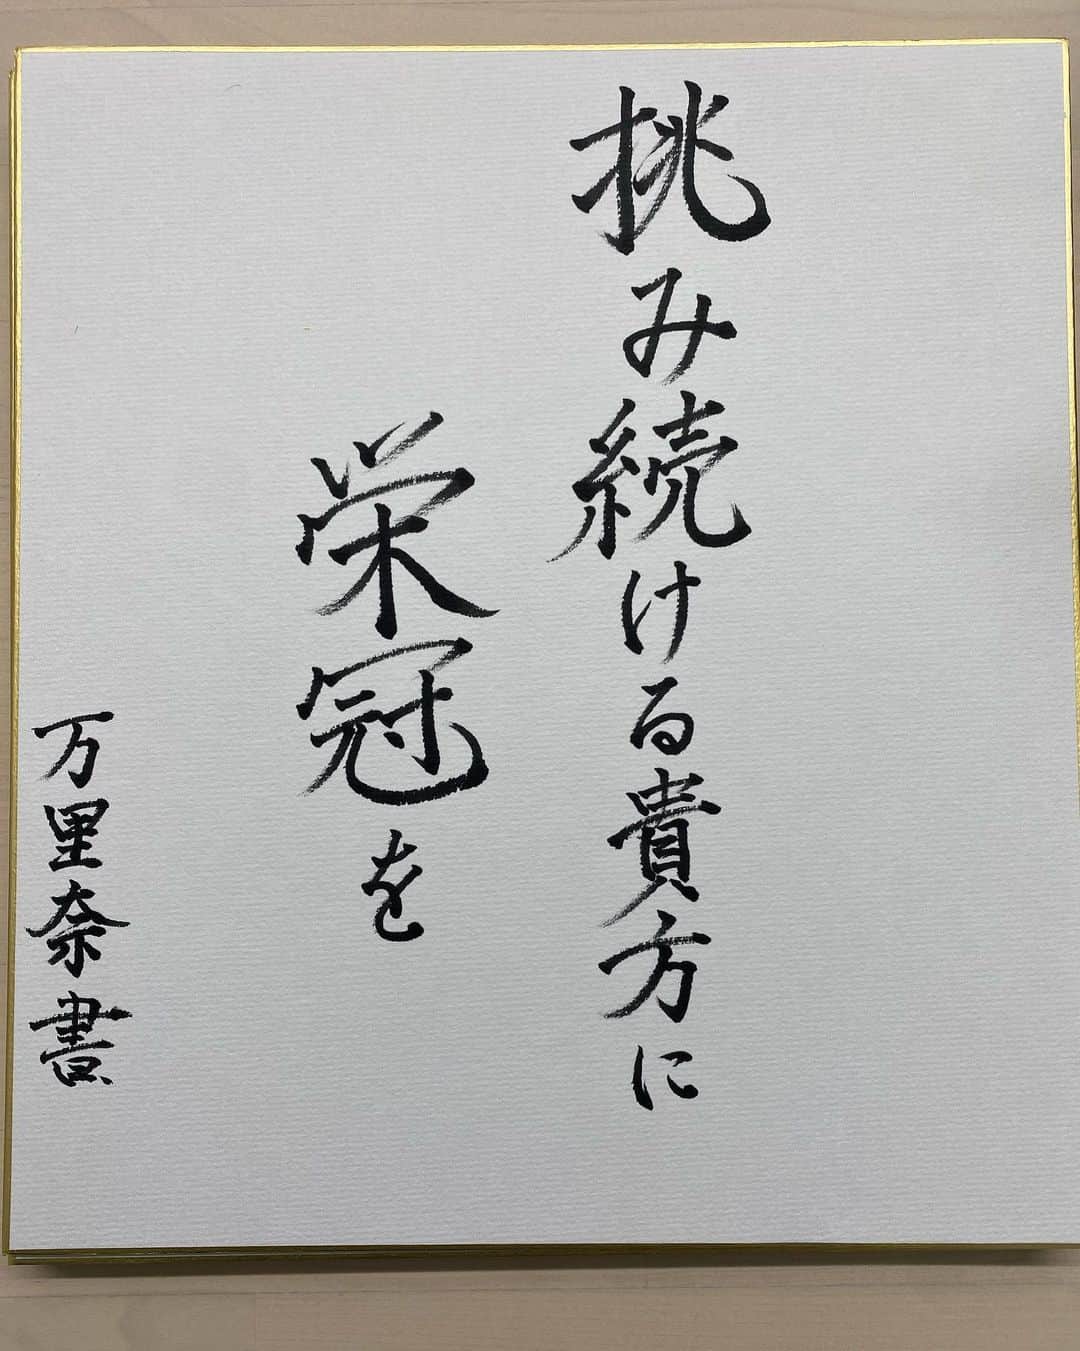 挑み続ける貴方に
栄冠を
万里奈書